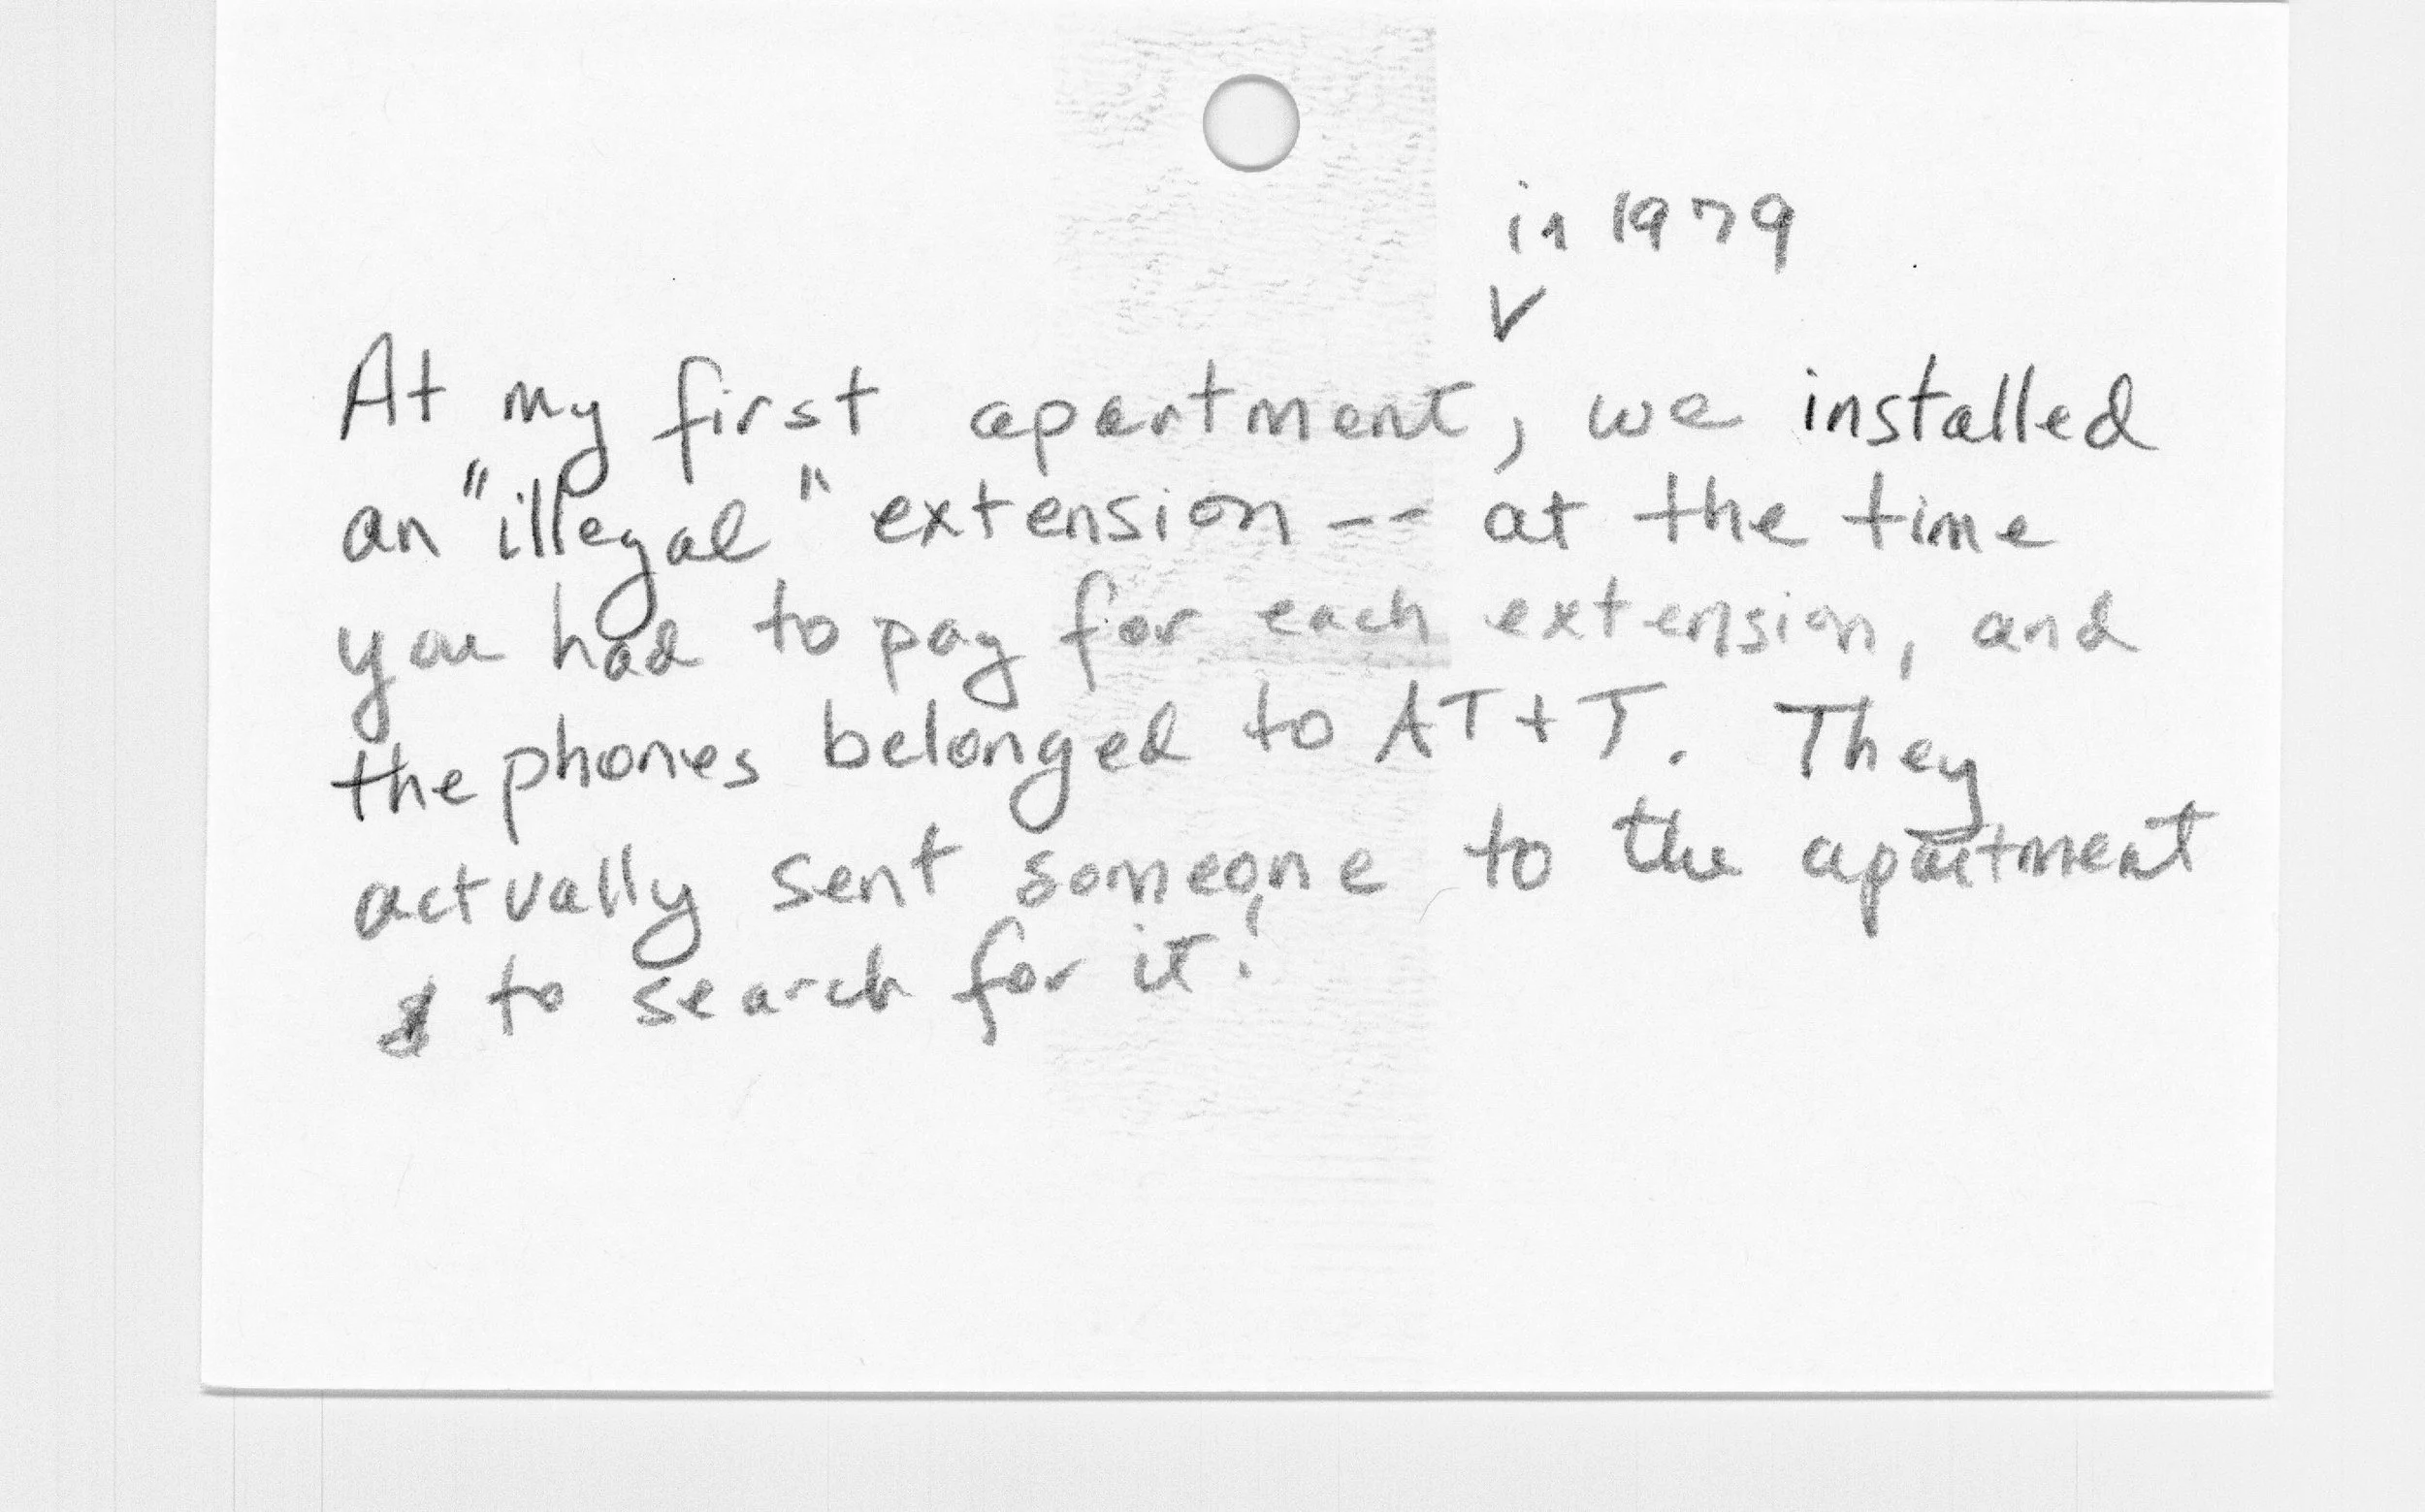 in 1979
V
At my first apartment, we installed
an "illegal" extension -- at the time
you had to pay for each extension, and
the phones belonged to AT+T. They
actually sent someone to the apartment
to search for it!